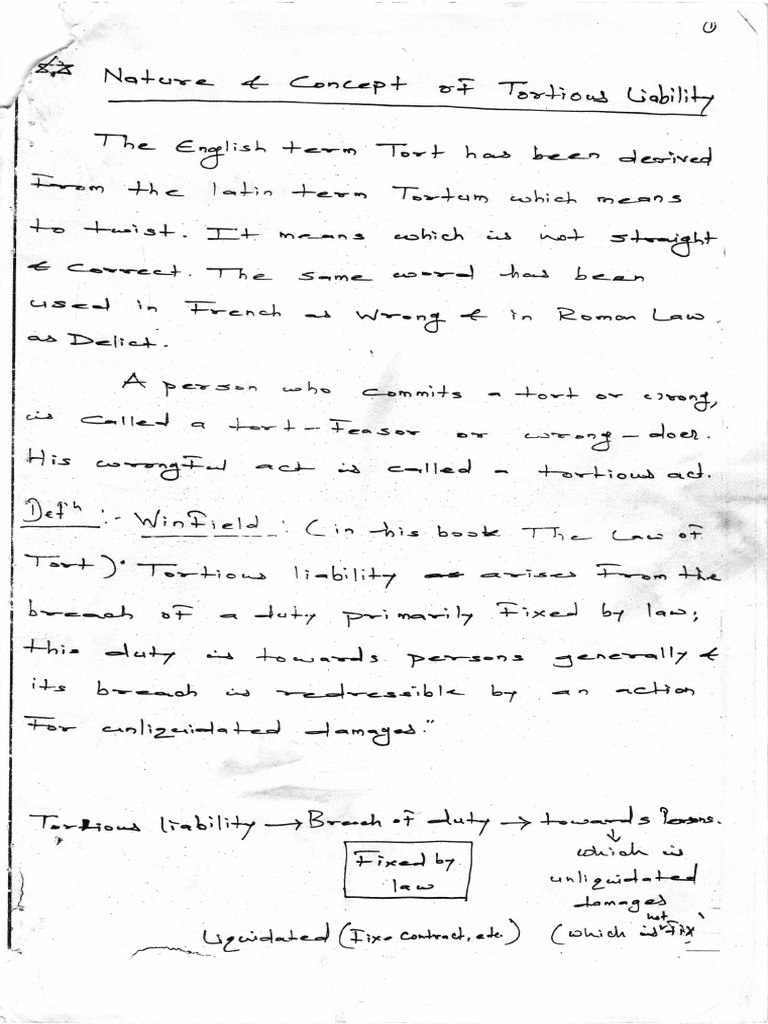 ①
Nature & Concept of Tortious Liability
The English term Tort has been derived
From the latin term Tortum which means
to twist. It means which is not straight
& correct. The same word has been
used in French as Wrong & in Roman Law
as Delict.
A person who commits a tort or wrong,
is called a tort-Feasor or wrong-doer.
His wrongful act is called a tortious act.
Defⁿ :- WinField : (in his book The Law of
Tort). "Tortious liability arises From the
breach of a duty primarily Fixed by law;
this duty is towards persons generally &
its breach is redressible by an action
For unliquidated damages."
Tortious liability → Breach of duty → towards Persons.
↓
Fixed by which is
law unliquidated
damages
Liquidated (Fix. contract, etc.) (which is not Fix)